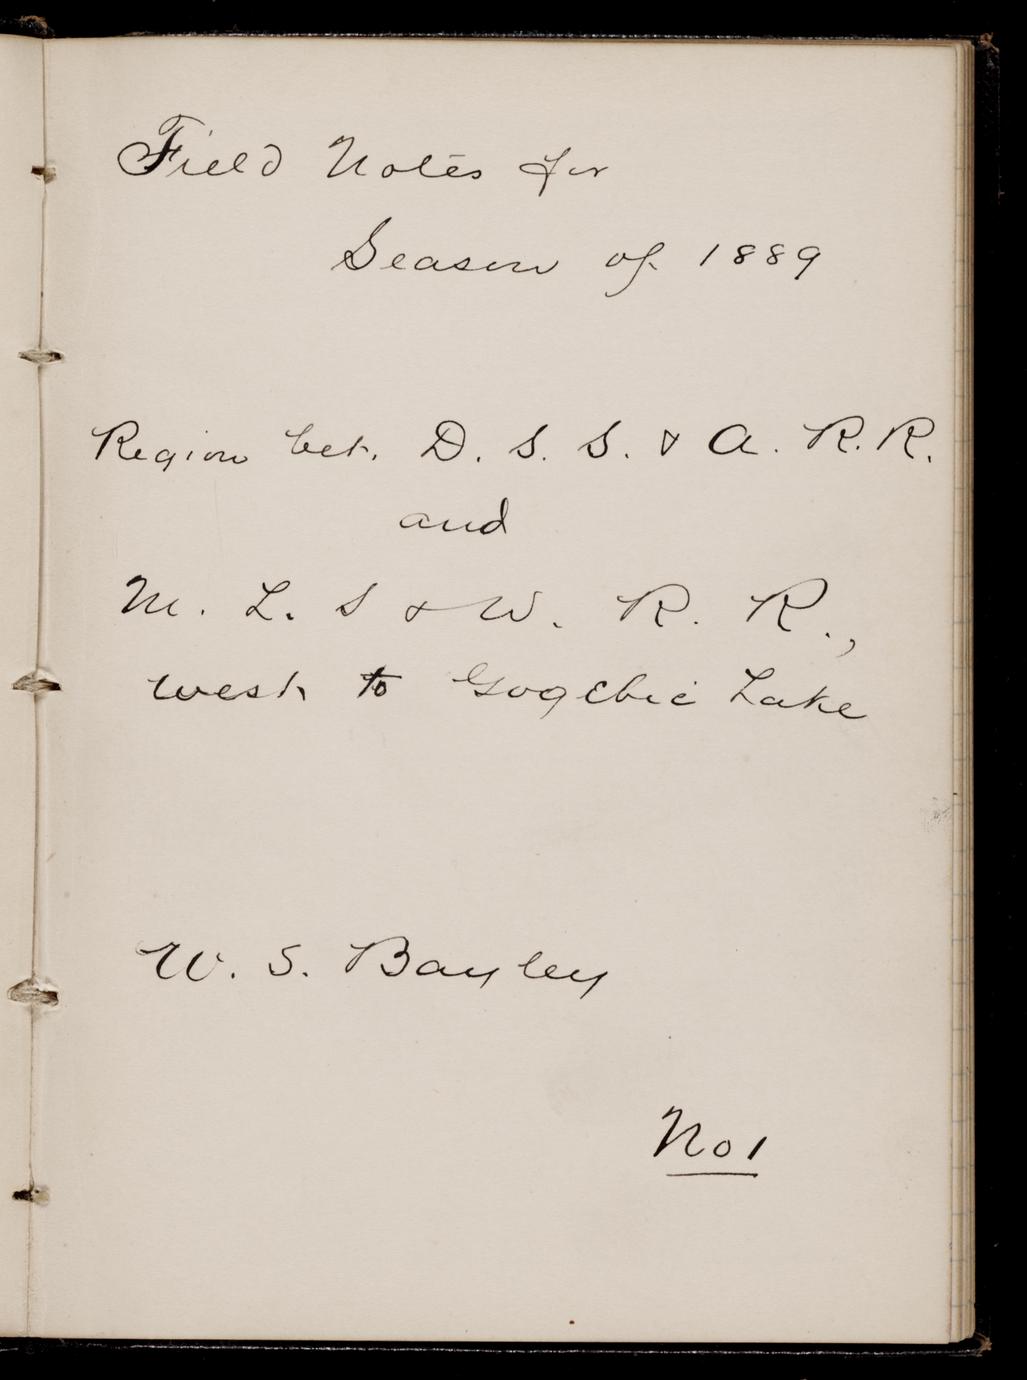 Field Notes for
Season of 1889
Region bet. D. S. S. & A. R. R.
and
M. L. S & W. R. R.,
west to Gogebic Lake
W. S. Bayley
No 1